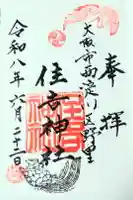 奉拝
大阪市西淀川区野里
住吉神社
令和八年六月二十二日